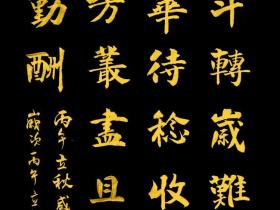 斗轉歲難
華待稔收
芳叢盡且
勤酬
丙午立秋感
歲次丙午立